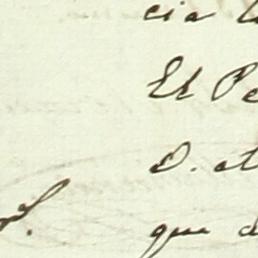 cia
El Pe
D. at
que d